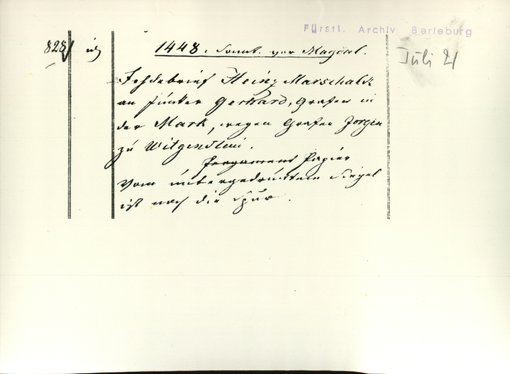 Fürstl. Archiv Berleburg
828
1448. Sonnt. vor Magdal.
Juli 21
Fehdebrief Heinz Marschalck
an Junker Gerhard, Grafen in
der Mark, wegen Grafen Jorgen
zu Witgenstein.
Pergament Papier
Vom untergedrückten Siegel
ist noch die Spur.